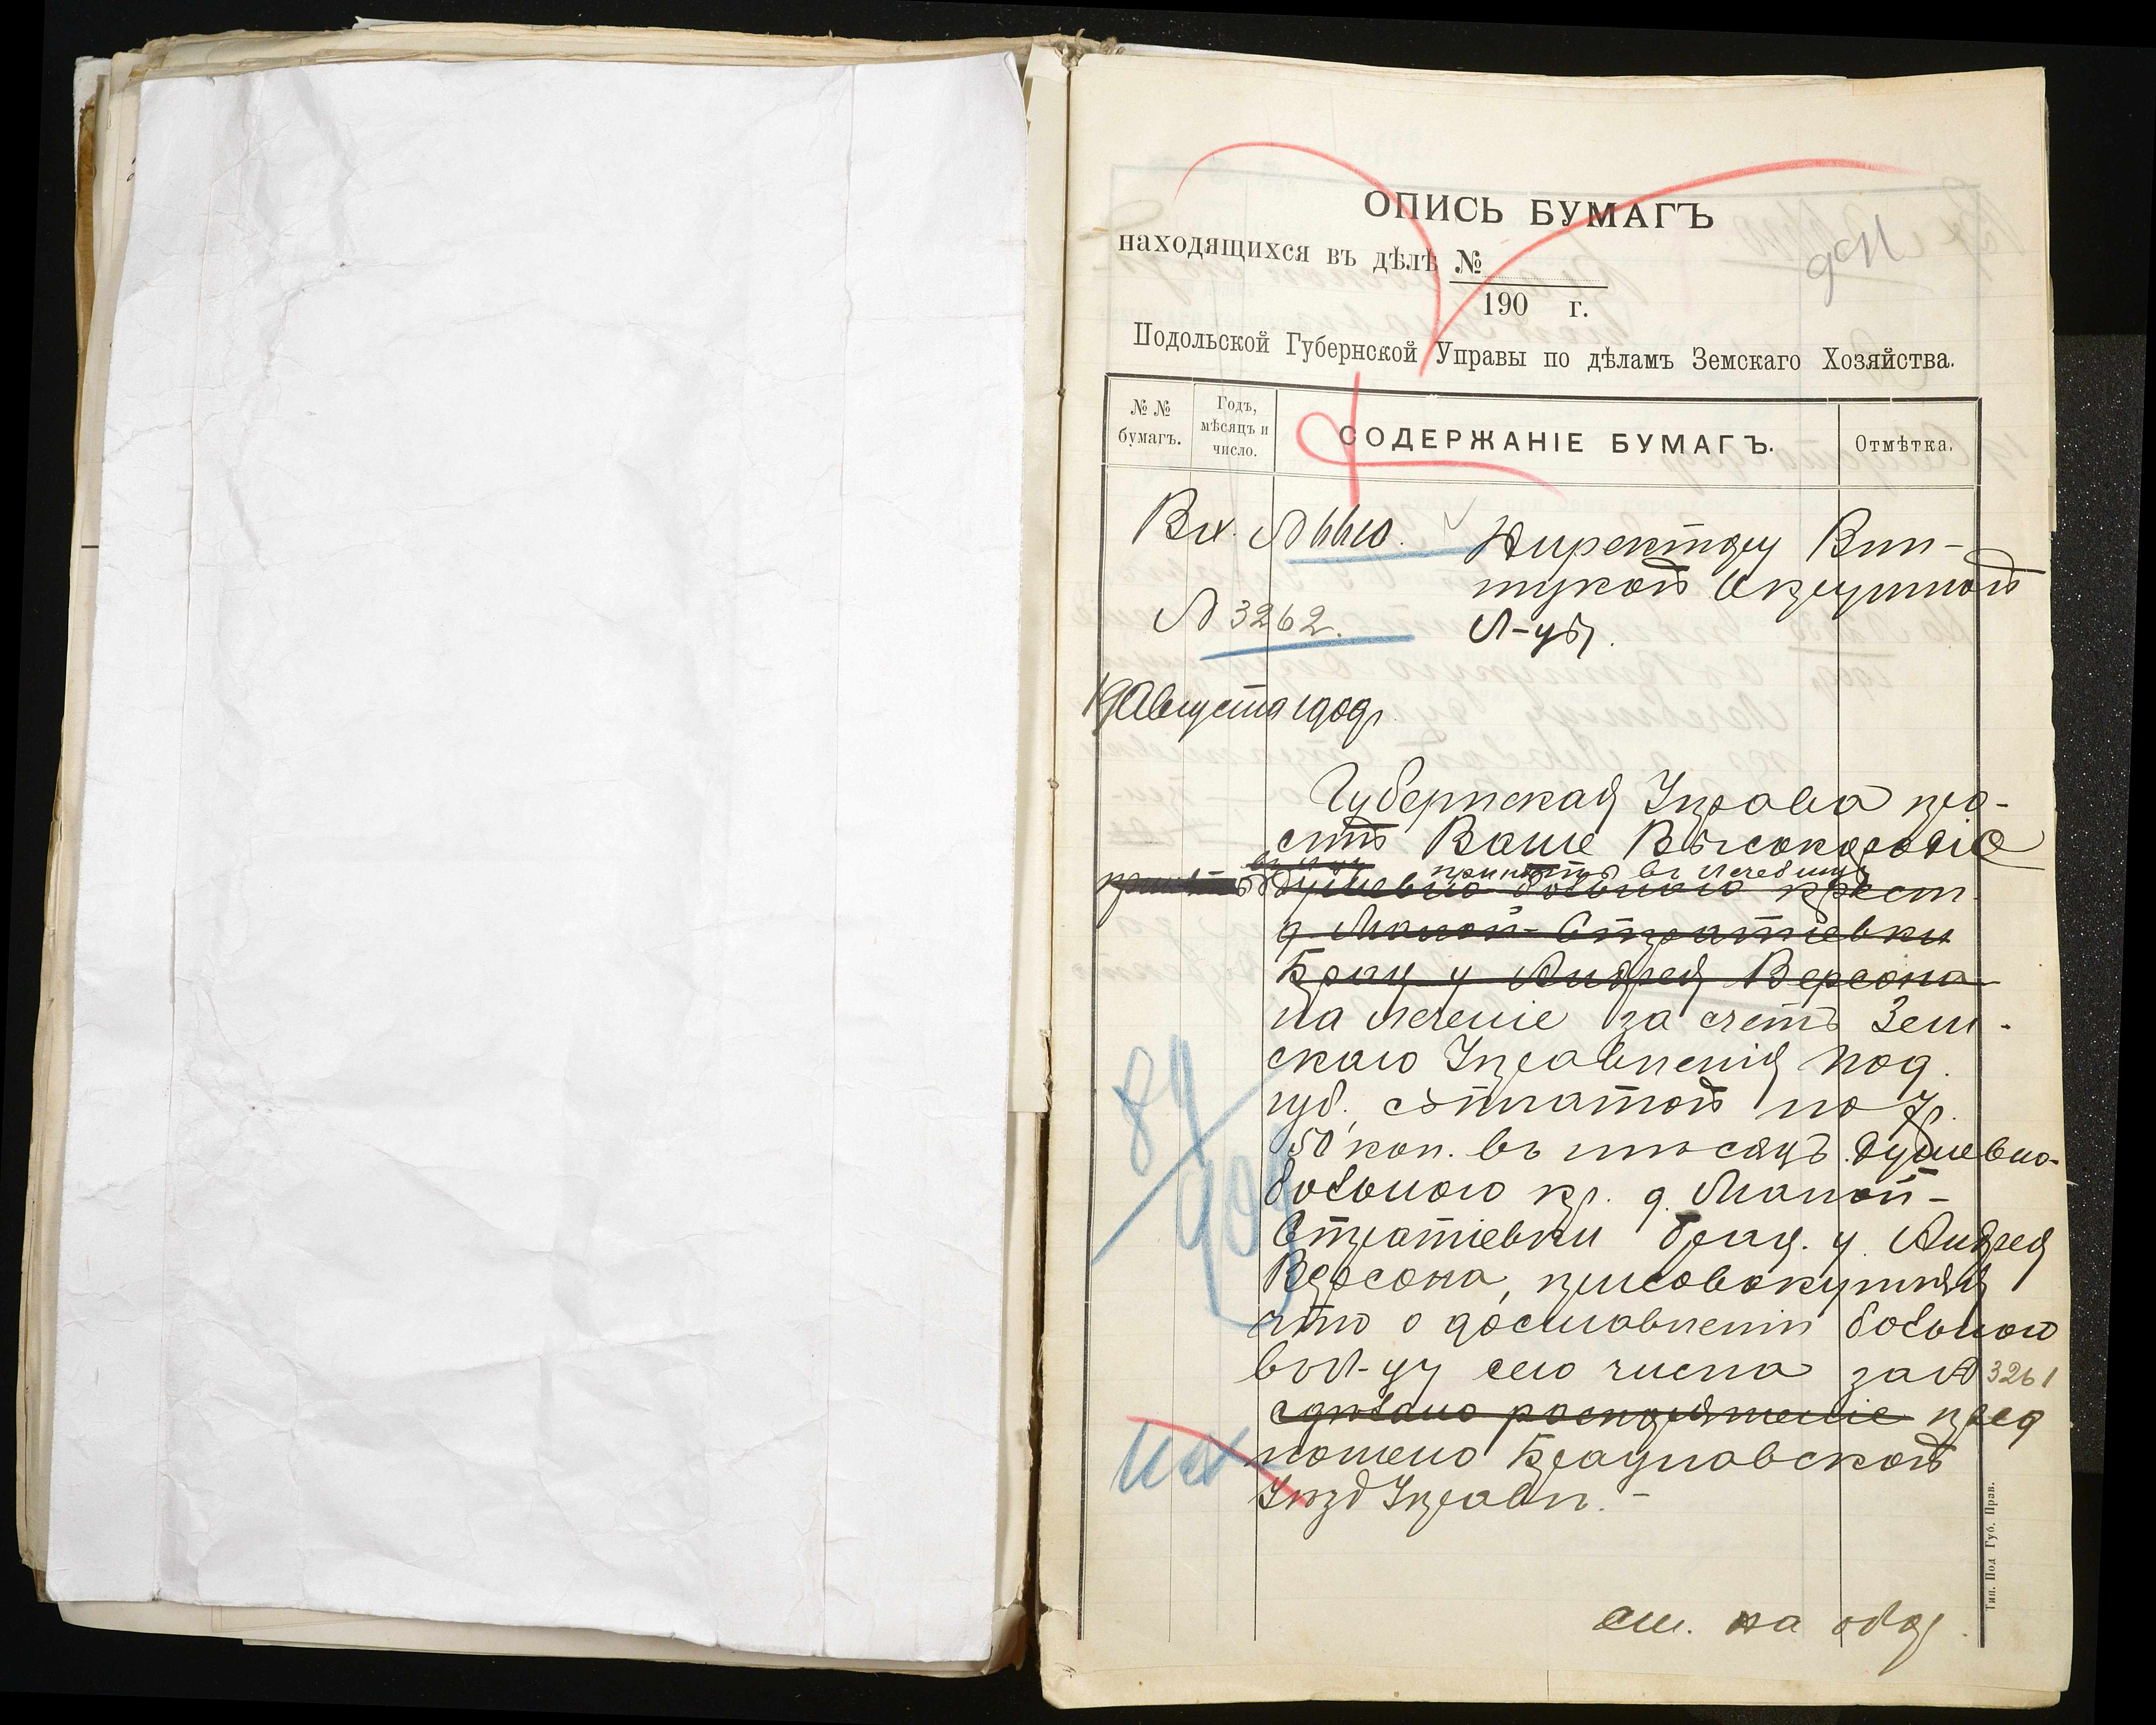 ОПИСЬ БУМАГЪ
находящихся въ дѣлѣ №
190 г.
Подольской Губернской Управы по дѣламъ Земскаго Хозяйства.
№ №
бумагъ.
Годъ,
мѣсяцъ и
число.
СОДЕРЖАНІЕ БУМАГЪ.
Отмѣтка.
Вх. № 6610. Директору Вин-
ницкой Окружной
№ 3262. Л-цы.
19 Августа 1909 г.
Губернская Управа про-
ситъ Ваше Высокородіе
принять въ лечебницу
душевно больного крест.
д. Малой-Стратіевки
Брац. у Андрея Версона
на леченіе за счетъ Зем-
скаго Управленія Под.
губ. съ платой по 7 р.
50 коп. въ мѣсяцъ душевно-
больного кр. д. Малой-
Стратіевки брац. у. Андрея
Версона, присовокупляя
что о доставленіи больного
въ Л-цу сего числа за № 3261
сдѣлано распоряженіе пред
ложено Брацлавской
Уѣзд Управѣ. -
84
909
см. на обор.
Тип. Под Губ. Прав.